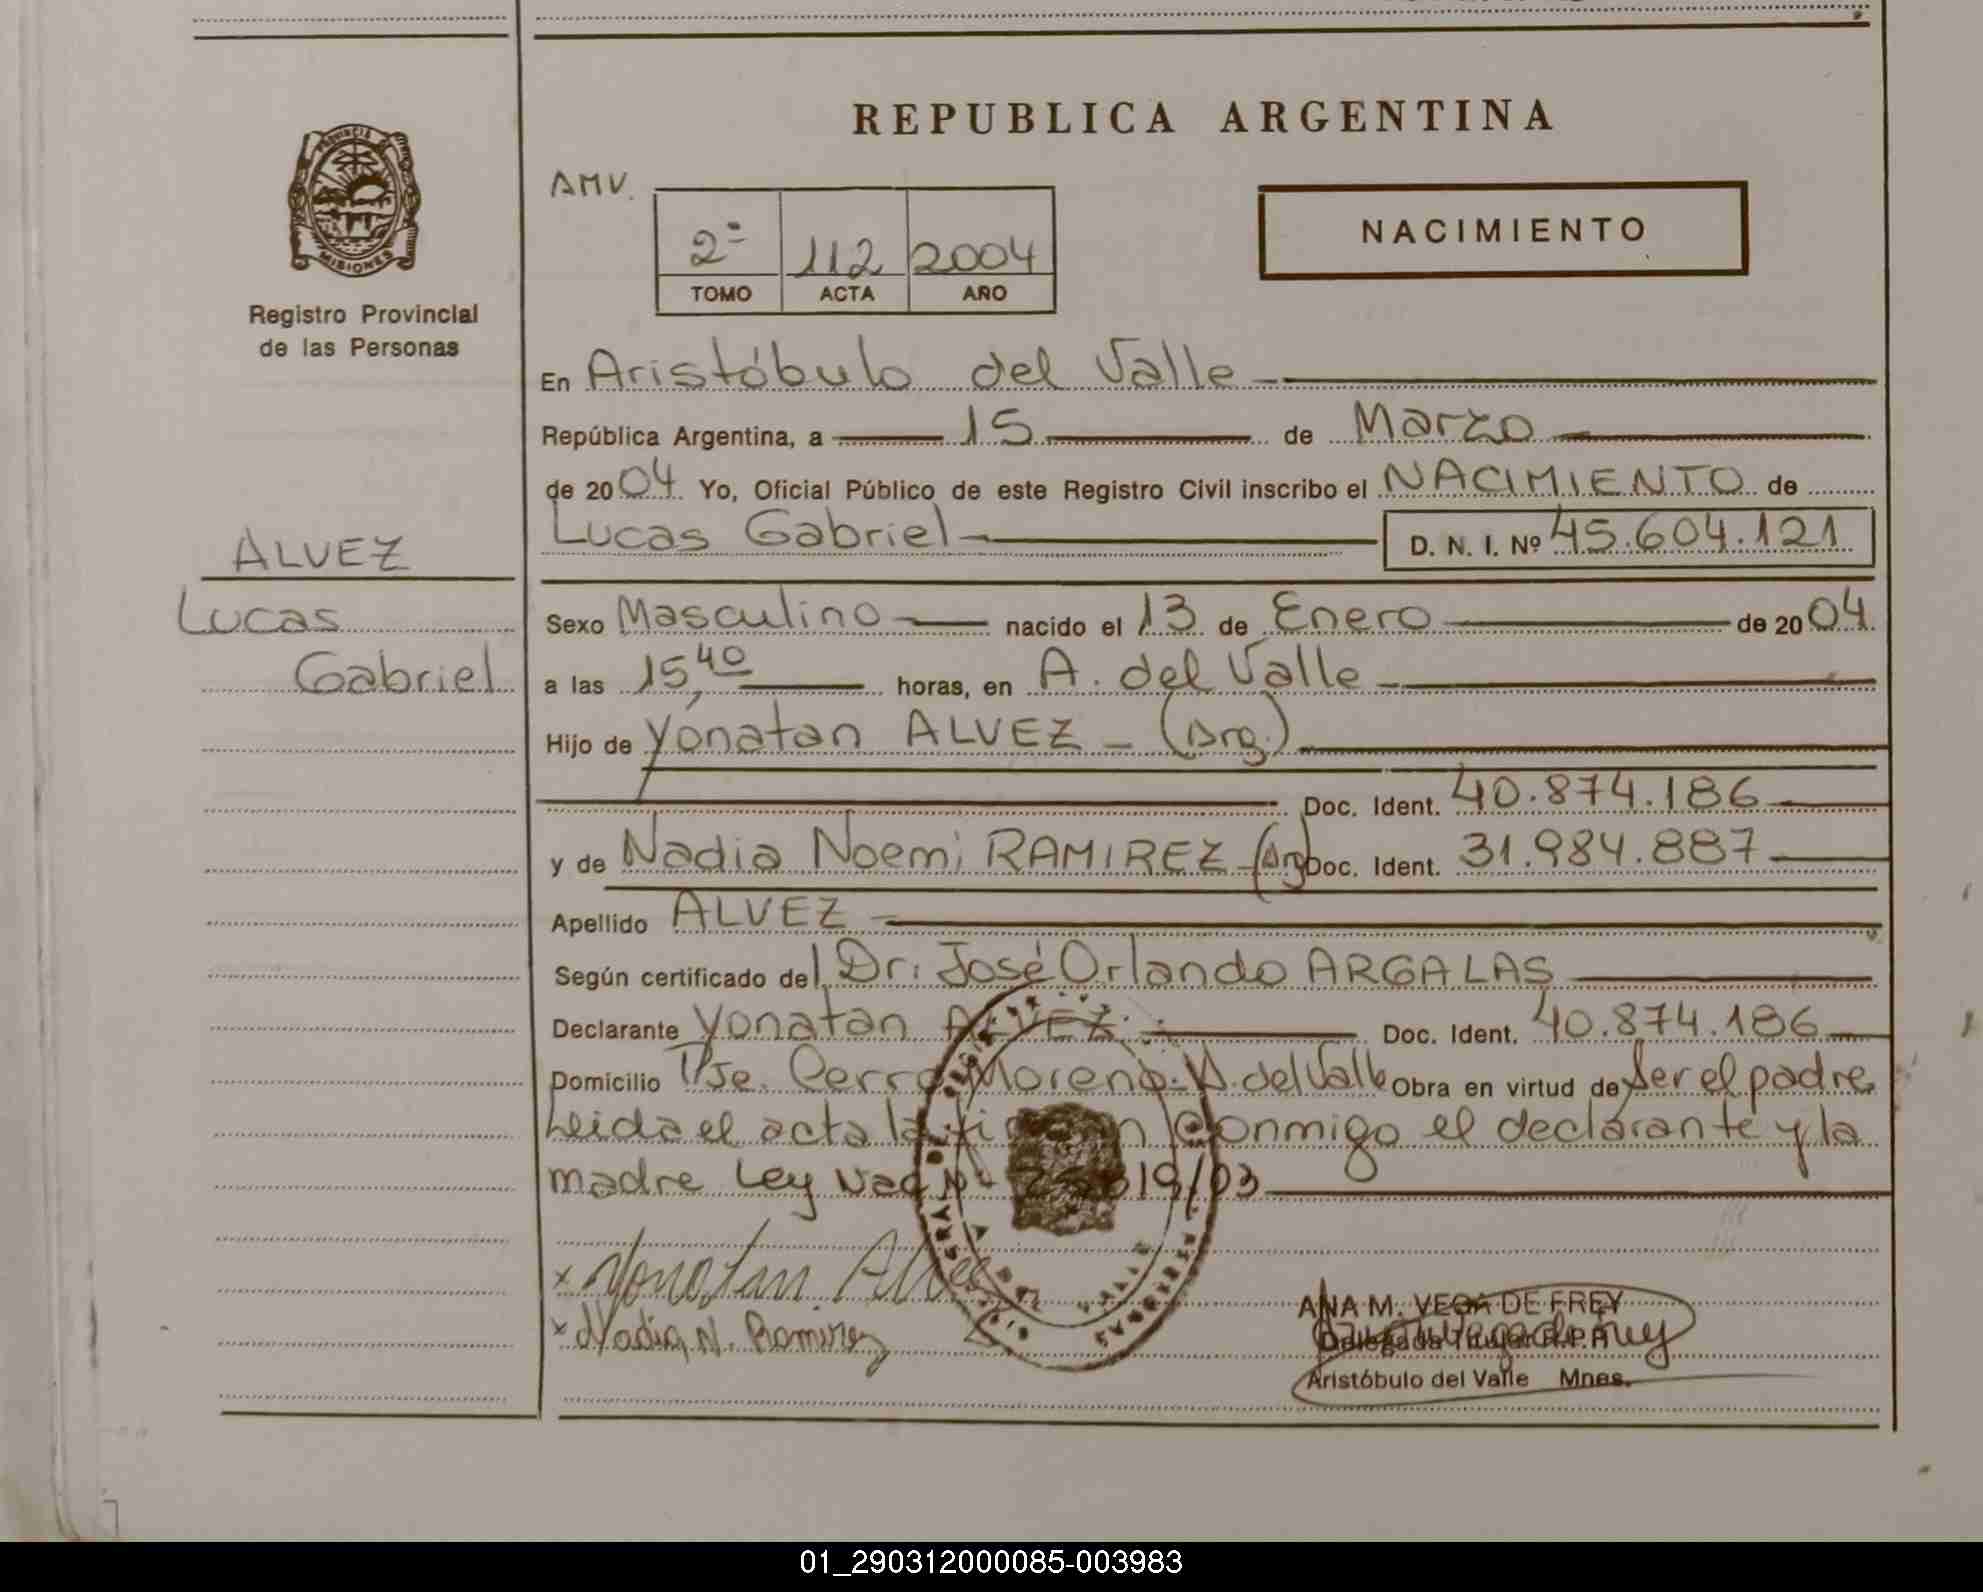 REPUBLICA ARGENTINA
PROVINCIA
MISIONES
Registro Provincial
de las Personas
AMV.
2º 112 2004
TOMO ACTA AÑO
NACIMIENTO
En Aristóbulo del Valle
República Argentina, a 15 de Marzo
de 2004 Yo, Oficial Público de este Registro Civil inscribo el NACIMIENTO de
Lucas Gabriel D. N. I. Nº 45.604.121
ALVEZ
Lucas
Gabriel
Sexo Masculino nacido el 13 de Enero de 2004
a las 15,40 horas, en A. del Valle
Hijo de Yonatan ALVEZ - (Arg.)
Doc. Ident. 40.874.186
y de Nadia Noemi RAMIREZ - (Arg) Doc. Ident. 31.984.887
Apellido ALVEZ
Según certificado del Dr. José Orlando ARGALAS
Declarante Yonatan ALVEZ Doc. Ident. 40.874.186
Domicilio Pje. Cerro Moreno - A. del Valle Obra en virtud de Ser el padre
Leida el acta la conmigo el declarante y la
madre Ley Nac Nº
Yonatan Alvez
Nadia N. Ramirez
ANA M. VEGA DE FREY
Delegada Titular R.P.P.
Aristóbulo del Valle Mnes.
01_290312000085-003983